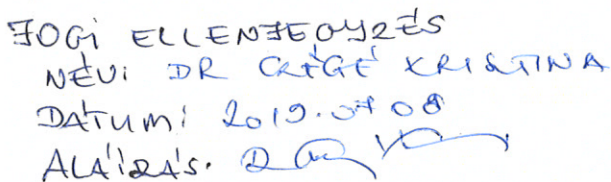 JOGI ELLENJEGYZÉS
NÉV: DR KRISTINA
DÁTUM: 2019.07 08
ALÁÍRÁS: